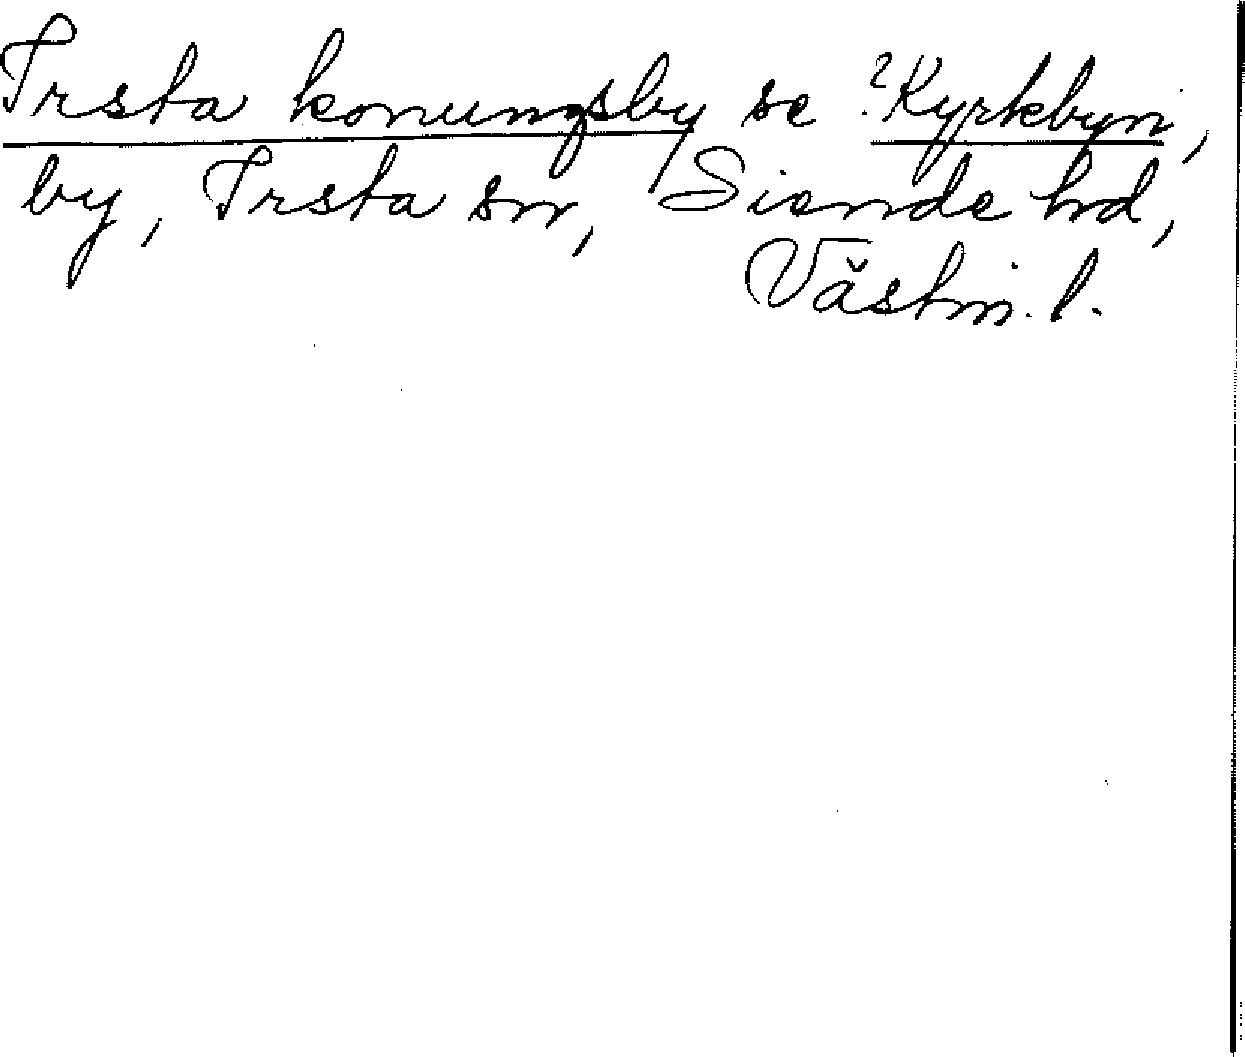 Irsta konungsby se ?Kyrkbyn,
by, Irsta sn, Siende hd,
Västm. l.